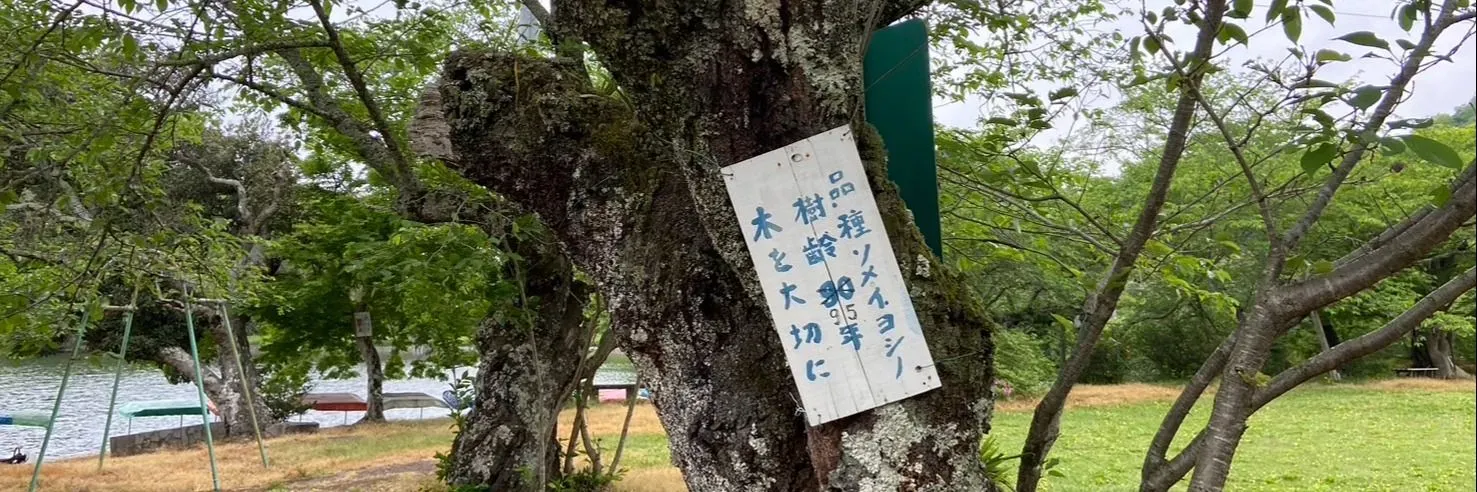 品種ソメイヨシノ
樹齢95年
木を大切に